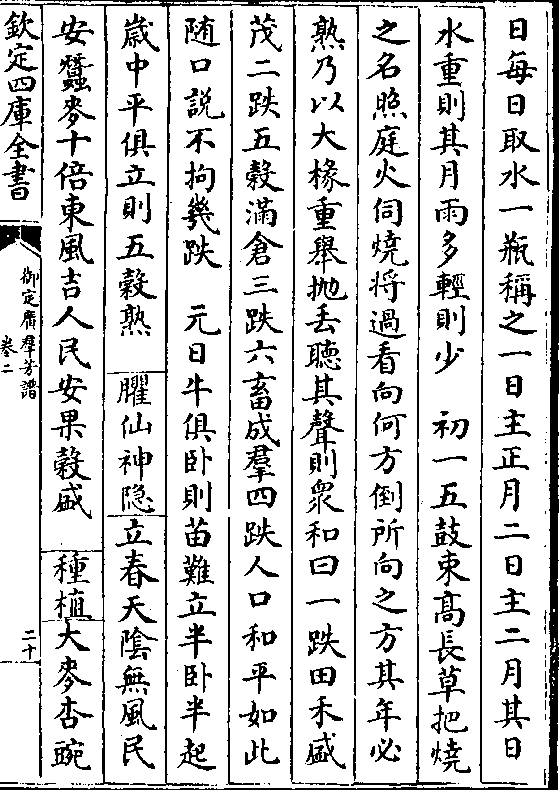 日每日取水一瓶稱之一日主正月二日主二月其日
水重則其月雨多輕則少　初一五鼓束髙長草把燒
之名照庭火伺燒将過看向何方倒所向之方其年必
熟乃以大椽重舉抛丢聽其聲則衆和曰一跌田禾盛
茂二跌五穀滿倉三跌六畜成羣四跌人口和平如此
随口說不拘幾跌　元日牛俱卧則苗難立半卧半起
歲中平俱立則五穀熟　臞仙神隐立春天陰無風民
安蠶麥十倍東風吉人民安果穀盛　種植大麥杏豌
欽定四庫全書
御定廣羣芳譜
卷二
二十